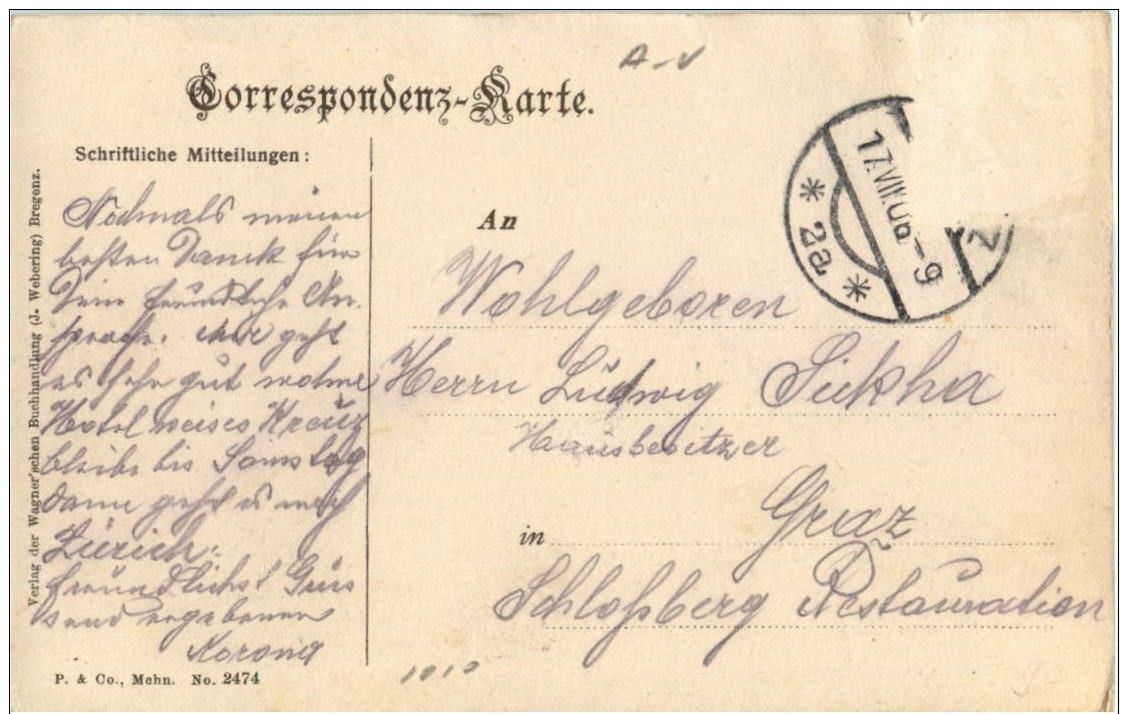 A-V
Correspondenz-Karte.
Schriftliche Mitteilungen:
Nochmals meinen
besten Dank für
Deine freundliche An-
sprache. Mir geht
es sehr gut wohne
Hotel weises Kreuz
bleibe bis Samstag
dann geht es nach
Zürich.
freundlichst Grüs
send ergebenen
Verlag der Wagner'schen Buchhandlung (J. Webering) Bregenz.
P. & Co., Mchn. No. 2474
17.VIII.06-9
* 2a *
An
Wohlgeboren
Herrn Ludwig Sukha
Hausbesitzer
in Graz
Schloßberg Restauration
1010